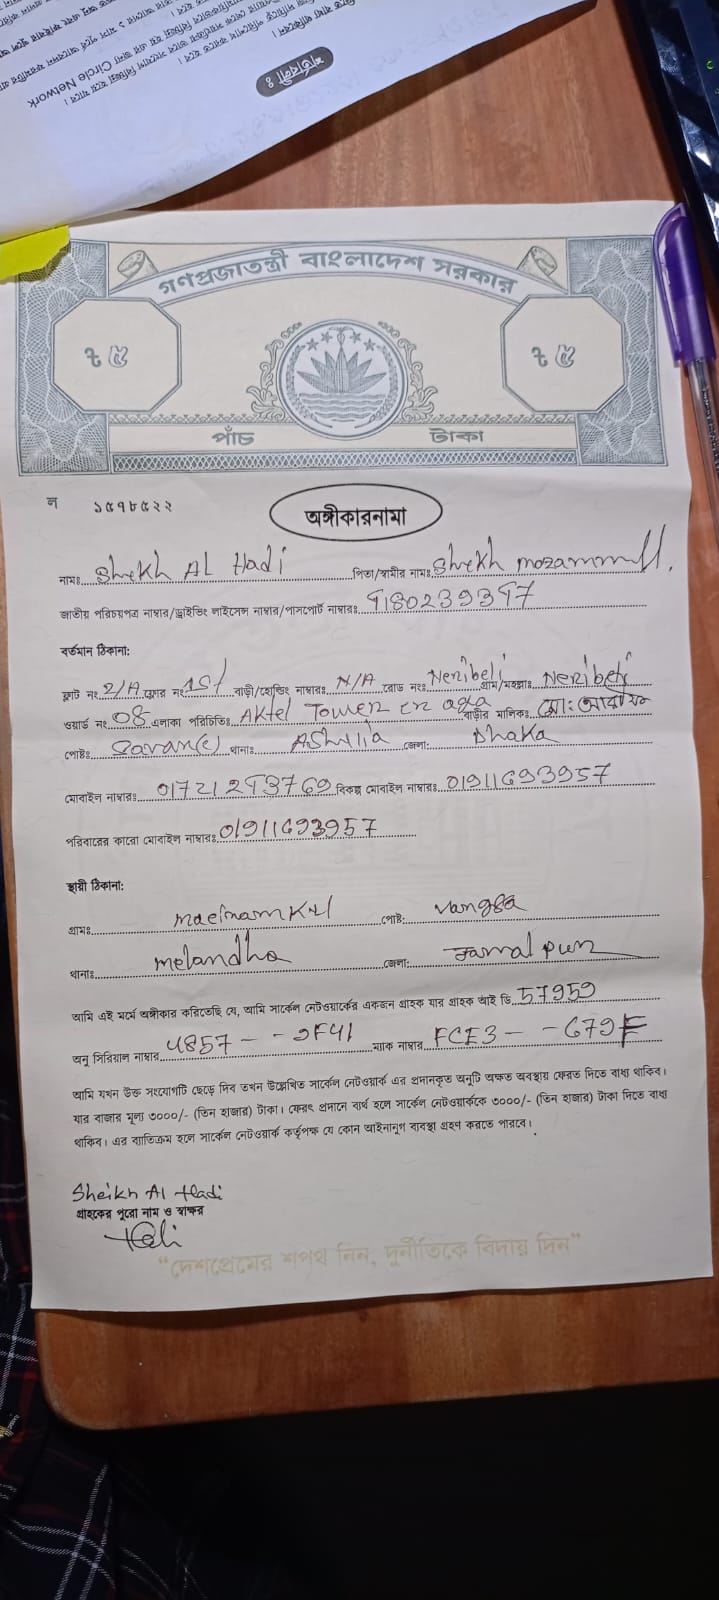 Circle Network
শর্তাবলী ঃ
গণপ্রজাতন্ত্রী বাংলাদেশ সরকার
৳ ৫ ৳ ৫
পাঁচ টাকা
ল ১৫৭৮৫২২
অঙ্গীকারনামা
নামঃ Shekh AL Hadi পিতা/স্বামীর নামঃ Shekh
জাতীয় পরিচয়পত্র নাম্বার/ড্রাইভিং লাইসেন্স নাম্বার/পাসপোর্ট নাম্বারঃ
বর্তমান ঠিকানা:
ফ্লাট নং 2/A ফ্লোর নং 1st বাড়ী/হোল্ডিং নাম্বারঃ N/A রোড নংঃ Neribeli গ্রাম/মহল্লাঃ Neribeli
ওয়ার্ড নং 08 এলাকা পরিচিতিঃ Aktel Tower er বাড়ীর মালিকঃ মো:
পোষ্টঃ Savar(c) থানাঃ Ashulia জেলা: Dhaka
মোবাইল নাম্বারঃ 01721293769 বিকল্প মোবাইল নাম্বারঃ 01911693957
পরিবারের কারো মোবাইল নাম্বারঃ 01911693957
স্থায়ী ঠিকানা:
গ্রামঃ পোষ্ট:
থানাঃ melandha জেলা: Jamalpur
আমি এই মর্মে অঙ্গীকার করিতেছি যে, আমি সার্কেল নেটওয়ার্কের একজন গ্রাহক যার গ্রাহক আই ডি 57959
অনু সিরিয়াল নাম্বার 4857 - - 9F41 ম্যাক নাম্বার FCE3 - - 679F
আমি যখন উক্ত সংযোগটি ছেড়ে দিব তখন উল্লেখিত সার্কেল নেটওয়ার্ক এর প্রদানকৃত অনুটি অক্ষত অবস্থায় ফেরত দিতে বাধ্য থাকিব।
যার বাজার মূল্য ৩০০০/- (তিন হাজার) টাকা। ফেরৎ প্রদানে ব্যর্থ হলে সার্কেল নেটওয়ার্ককে ৩০০০/- (তিন হাজার) টাকা দিতে বাধ্য
থাকিব। এর ব্যতিক্রম হলে সার্কেল নেটওয়ার্ক কর্তৃপক্ষ যে কোন আইনানুগ ব্যবস্থা গ্রহণ করতে পারবে।
Sheikh Al Hadi
গ্রাহকের পুরো নাম ও স্বাক্ষর
"দেশপ্রেমের শপথ নিন, দুর্নীতিকে বিদায় দিন"